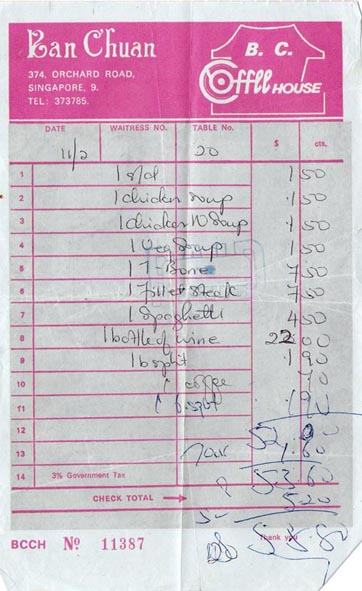 Ban Chuan
374, ORCHARD ROAD,
SINGAPORE, 9.
TEL: 373785.
B. C.
Coffee HOUSE
DATE WAITRESS NO. TABLE No. $ cts.
11/2 20
1 1 50
2 1 chicken soup 1 50
3 1 chicken N Soup 1 50
4 1 Veg Soup 1 50
5 1 T-Bone 7 50
6 1 Fillet steak 7 50
7 1 Spaghetti 4 50
8 1 bottle of wine 22 00
9 1 b split 1 90
10 1 coffee 70
11 1 b split 1 90
12
13
14 3% Government Tax 53 60
CHECK TOTAL → 5 20
Thank you
BCCH Nº 11387 58 80